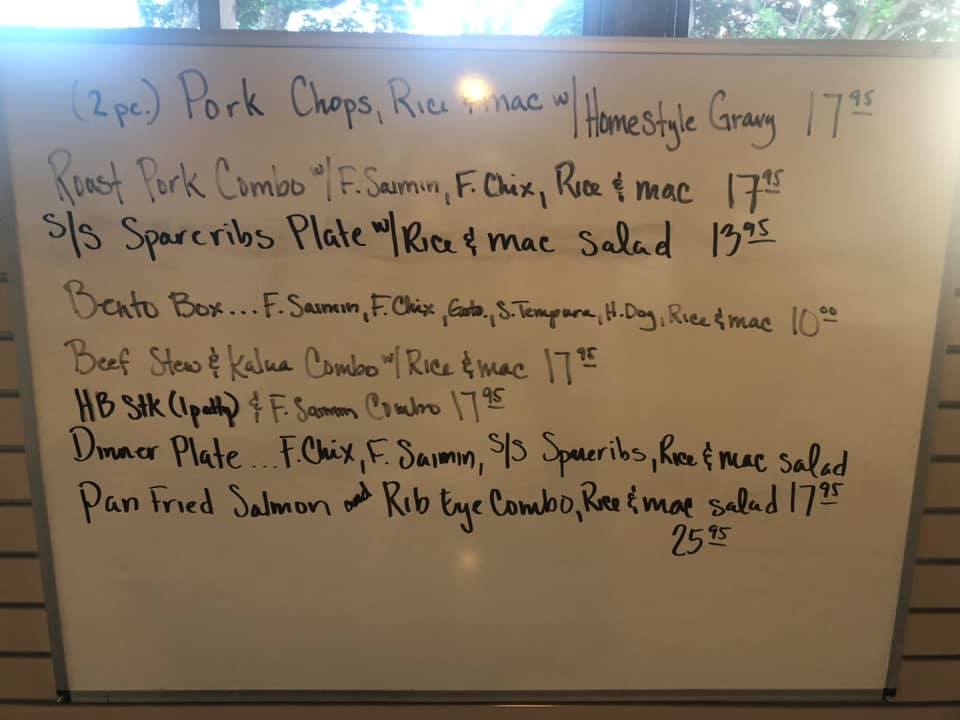 (2pc.) Pork Chops, Rice & mac w/ Homestyle Gravy 17 95
Roast Pork Combo w/ F. Saimin, F. Chix, Rice & mac 17 95
S/S Spareribs Plate w/ Rice & mac salad 13 95
Bento Box... F. Saimin, F. Chix, S. Tempura, H. Dog, Rice & mac 10 00
Beef Stew & Kalua Combo w/ Rice & mac 17 95
HB Stk (1 patty) & F. Saimin Combo 17 95
Dinner Plate... F. Chix, F. Saimin, S/S Spareribs, Rice & mac salad
Pan Fried Salmon and Rib Eye Combo, Rice & mac salad 17 95
25 95